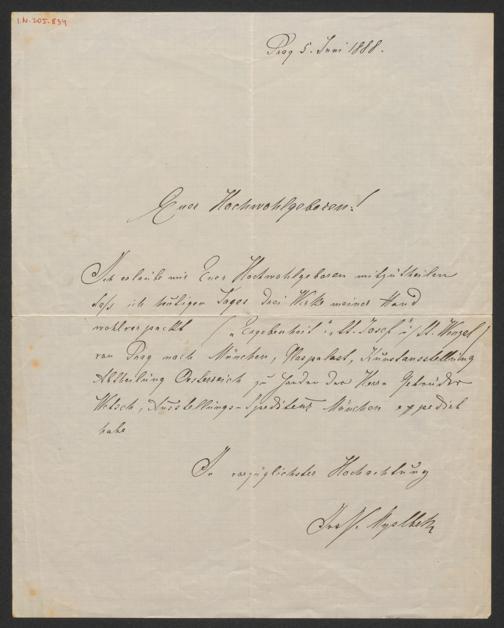 I.N. 205.834
Prag 5. Juni 1888.
Euer Hochwohlgeboren!
Ich erlaube mir Euer Hochwohlgeboren mitzutheilen
daß ich heutigen Tages drei Werke meiner Hand
wohlverpackt („Ergebenheit“, „St. Josef“ u. St. Wenzel)
von Prag nach München, Glaspalast, Kunstausstellung
Abtheilung Oesterreich zu Handen der Herrn Gebrüder
Wetsch, Ausstellungs-Spediteurs München expediert
habe
In vorzüglichster Hochachtung
Jos. V. Myslbek